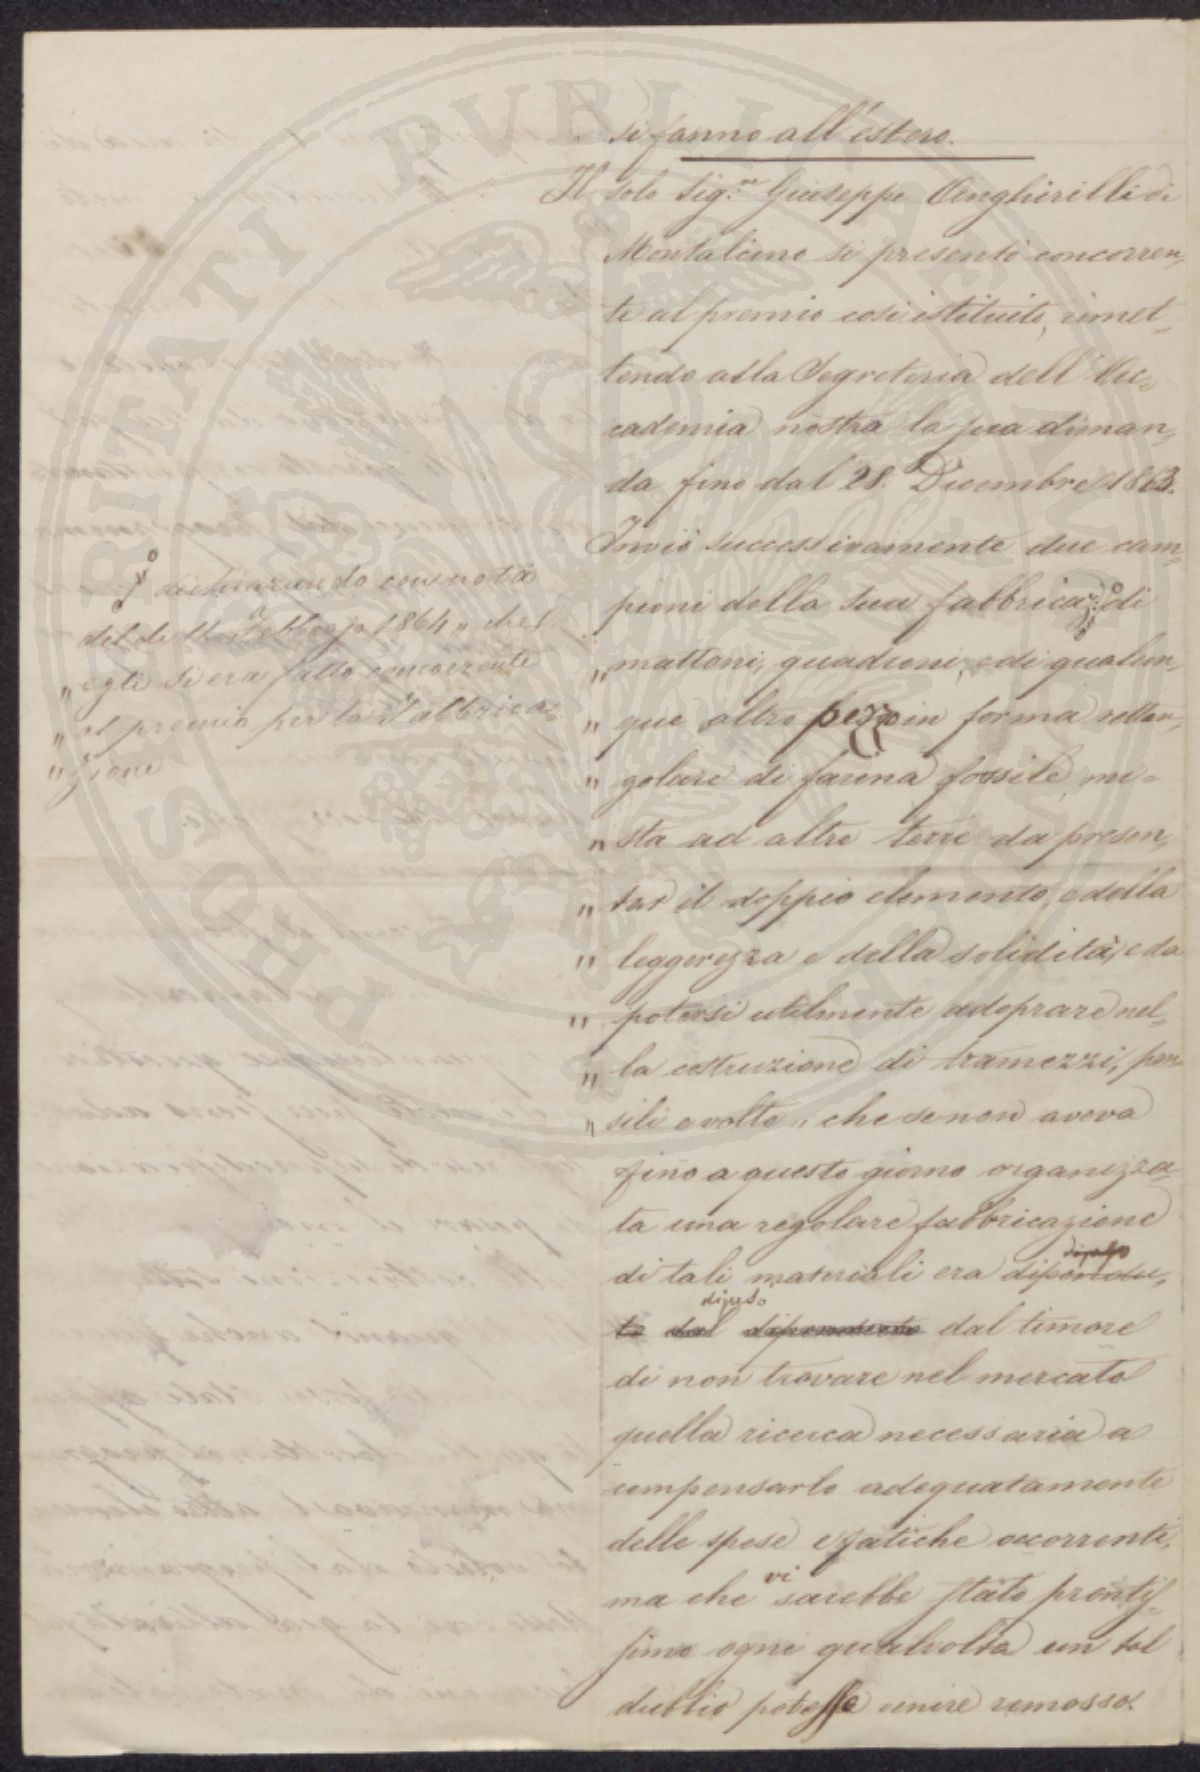 si fanno all'estero.
Il solo Sig.re Giuseppe Anghirelli di
Montalcino si presentò concorren„
te al premio così istituito, rimet„
tendo alla Segreteria dell'Ac„
cademia nostra la sua diman„
da fino dal 28. Dicembre 1863.
Inviò successivamente due cam„
pioni della sua fabbrica di
„ mattoni, quadroni, e di qualun„
„ que altro pezzo in forma rettan„
„ golare di farina fossile, mi=
„ sta ad altre terre da presen„
„ tar il doppio elemento, e della
„ leggerezza e della solidità, e da
„ potersi utilmente adoprare nel„
„ la costruzione di tramezzi, pen„
„ sili e volte „ che se non aveva
fino a questo giorno organizza„
ta una regolare fabbricazione
di tali materiali era dipendu„
to dal dal timore
di non trovare nel mercato
quella ricerca necessaria a
compensarlo adeguatamente
delle spese e fatiche occorrenti,
ma che vi sarebbe stato prontis„
simo ogni qualvolta un tal
dubbio potesse venire remosso.
dichiarando con nota
del dì 11 Febbrajo 1864 „ che
„ egli si era fatto concorrente
„ al premio per la Fabbrica„
„ zione
PROSPERITATI PUBLICAE